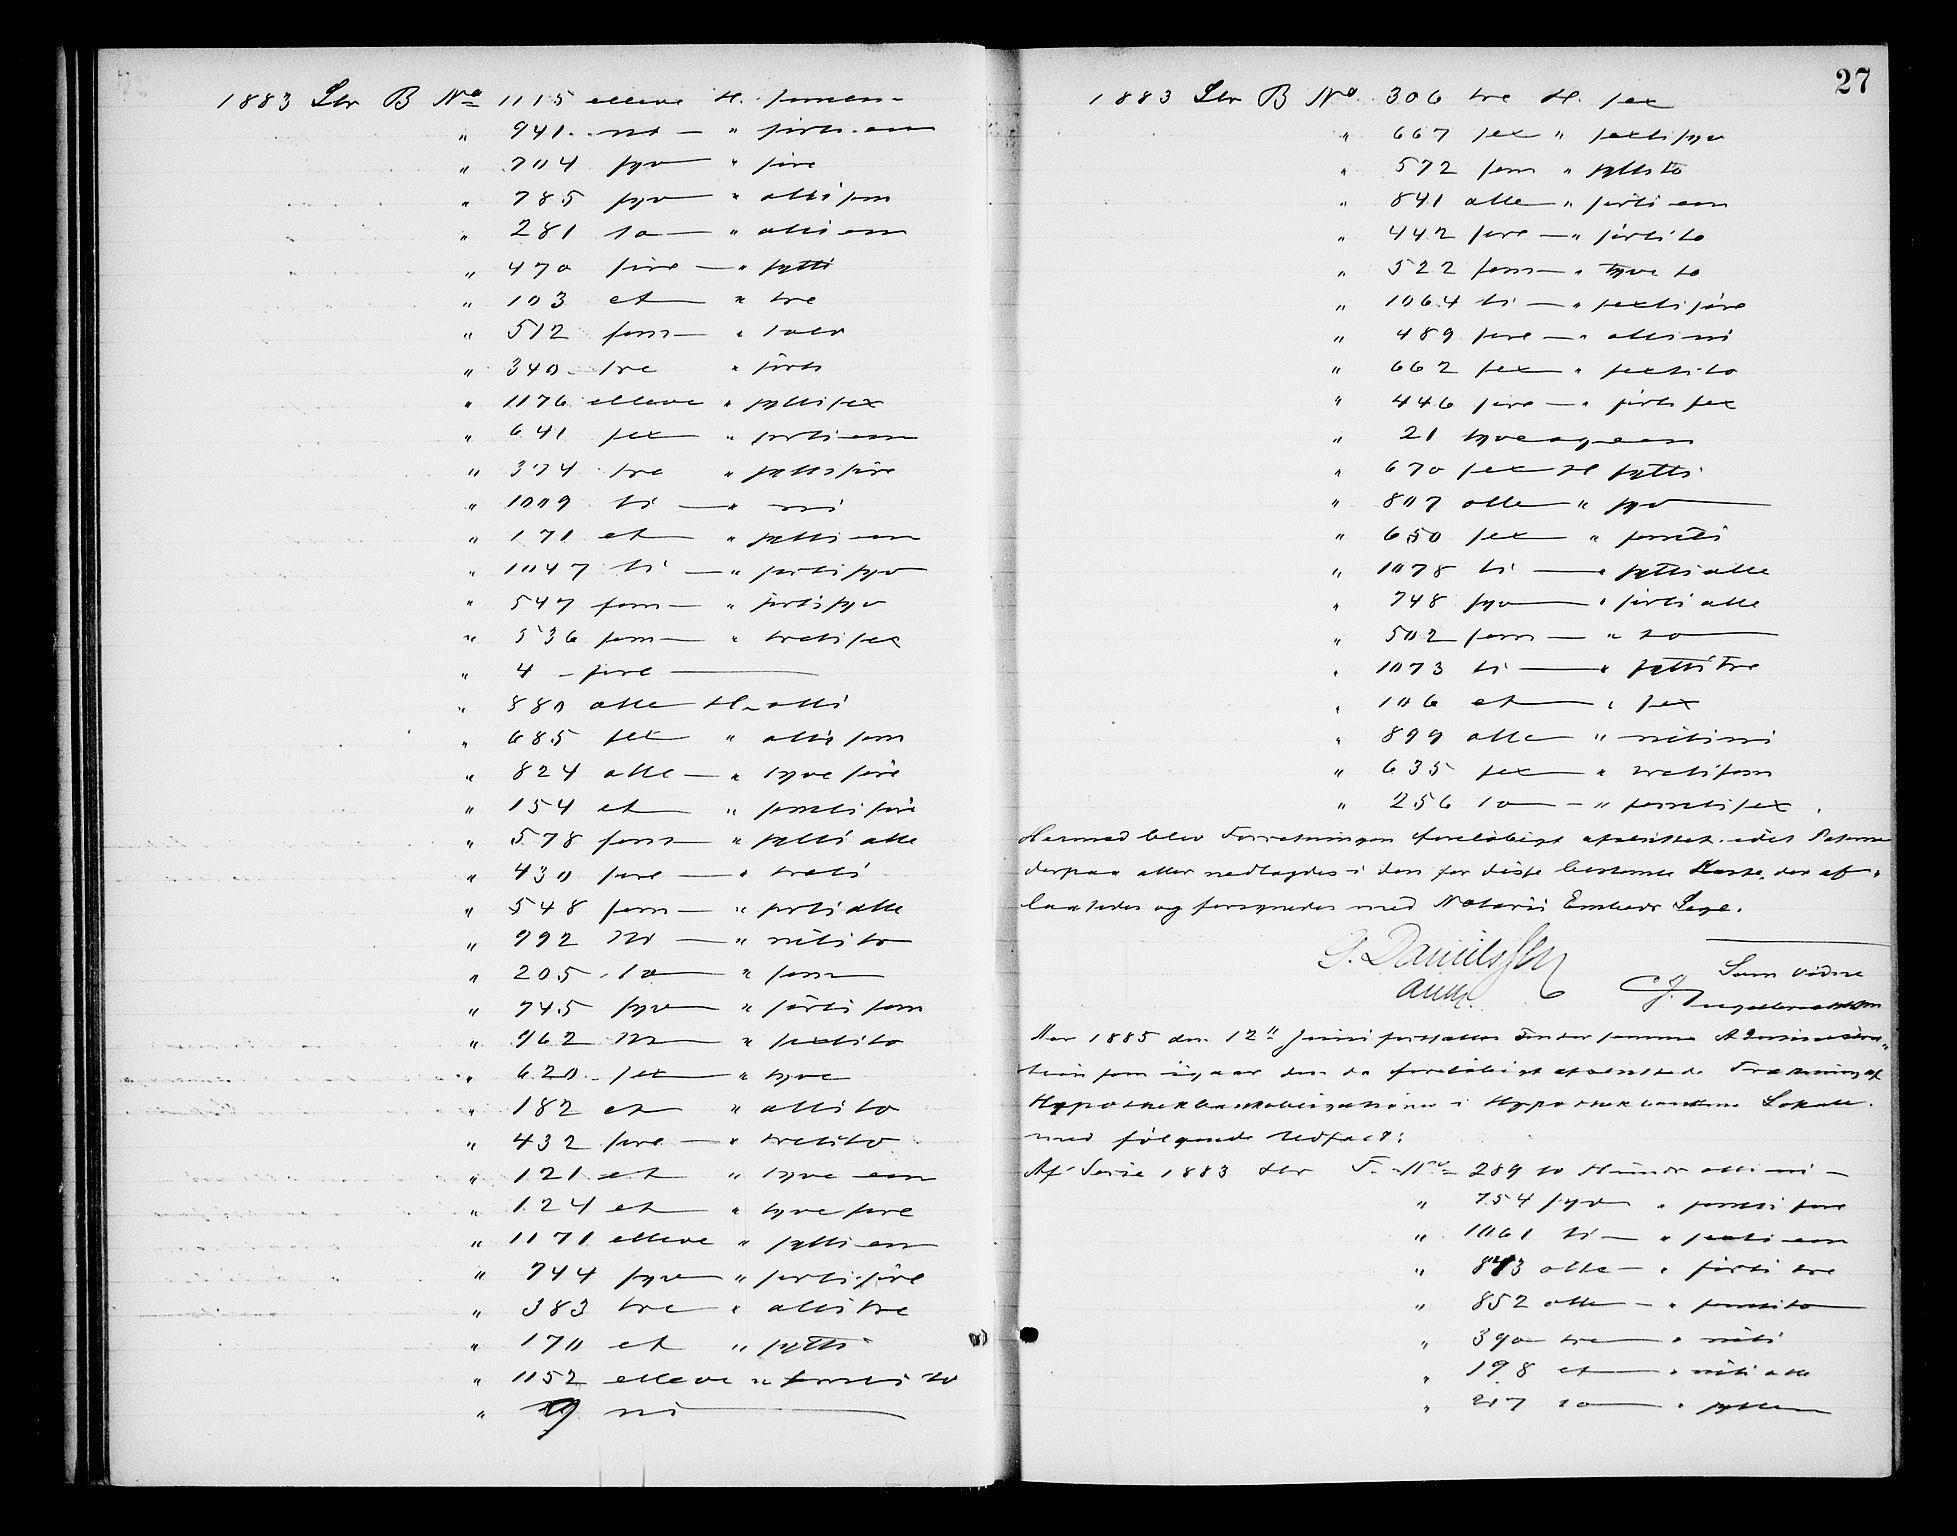 1883 Ltr B No 1115 elleve H. femten
" 941 ni — " förti en
" 704 syv " fire
" 785 syv " otti fem
" 281 to — " otti en
" 470 fire — " sytti
" 103 et " tre
" 512 fem — " tolv
" 340 tre " förti
" 1176 elleve " sytti sex
" 641 sex " förti en
" 374 tre " sytti fire
" 1009 ti — " ni
" 171 et " sytti en
" 1047 ti — " förti syv
" 547 fem — " förti syv
" 536 fem — " treti sex
" 4 – fire —
" 880 otte H. otti
" 685 sex " otti fem
" 824 otte — " tyve fire
" 154 et " femti fire
" 578 fem " sytti otte
" 430 fire — " treti
" 548 fem — " förti otte
" 992 Ni — " niti to
" 205 to " fem
" 745 syv " förti fem
" 962 Ni " sexti to
" 620 sex " tyve
" 182 et " otti to
" 432 fire — " treti to
" 121 et " tyve en
" 124 et " tyve fire
" 1171 elleve " sytti en
" 744 syv " förti fire
" 383 tre " otti tre
" 170 et " sytti
" 1152 elleve " femti to
" 9 ni —
27
1883 Ltr B No 306 tre H. sex
" 667 sex " sexti syv
" 572 fem " sytti to
" 841 otte " förti en
" 442 fire — " förti to
" 522 fem — " tyve to
" 1064 ti — " sexti fire
" 489 fire — " otti ni
" 662 sex " sexti to
" 446 fire — " förti sex
" 21 tyve og een
" 670 sex H sytti
" 807 otte " syv —
" 650 sex " femti
" 1078 ti — " sytti otte
" 748 syv — " förti otte
" 502 fem — " to —
" 1073 ti — " sytti tre
" 106 et — " sex
" 899 otte " niti ni
" 635 sex " treti fem
" 256 to — " femti sex.
Hermed blev Forretningen foreløbigt afsluttet, idet
derpaa atter nedlagdes i den for disse bestemte Kasse, der af-
laastes og forsynedes med Notarii Embeds Segl.
D. Danielssen
Som vidne
CJ. Ingebrektsen
Aar 1885 den 12" Juni fortsattes under samme Administra-
tion som igaar den da foreløbigt afsluttede Trækning af
Hypothekbankobligationer i Hypothekbankens Lokale
med følgende Udfald:
Af Serie 1883 Ltr F. No 289 to Hundr otti ni —
" 754 syv " femti fire
" 1061 ti — " sexti en
" 843 otte — " förti tre
" 852 otte — " femti to
" 390 tre " niti
" 198 et " niti otte
" 217 to " sytten